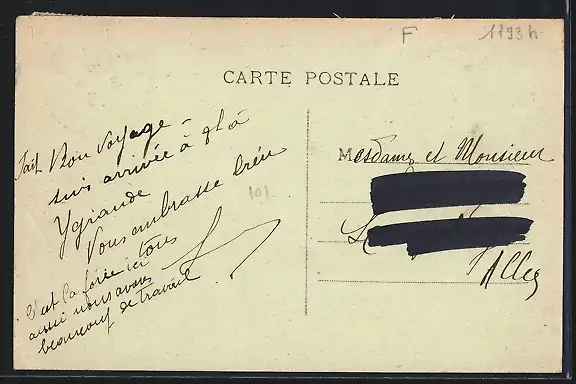 F
1793h
CARTE POSTALE
fait Bon voyage -
suis arrivée à 9h à
Ygrande
Vous embrasse bien
tous
C'est la foire ici
aussi nous avons
beaucoup de travail
10f
Mesdames et Monsieur
Allier